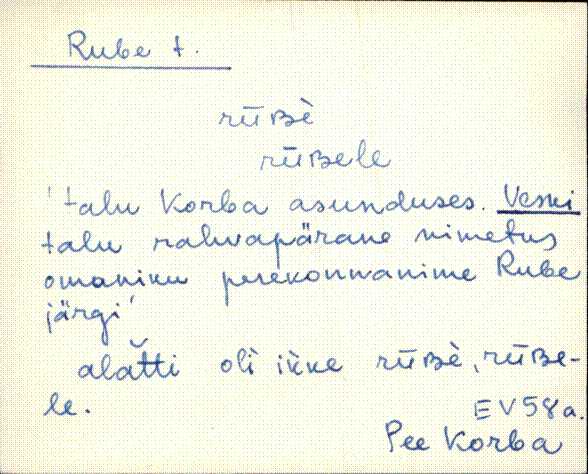 Rube t.
rūʙè
rūʙele
'talu Korba asunduses. Veski
talu rahvapärane nimetus
omaniku perekonnanime Rube
järgi'
alat̆ti oli ikke rūʙè, rūʙe-
le.
EV58a.
Pee Korba